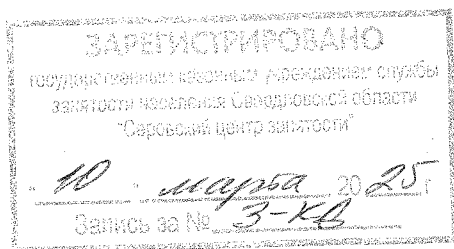 ЗАРЕГИСТРИРОВАНО
государственным казенным учреждением службы
занятости населения Свердловской области
"Серовский центр занятости"
"10" марта 2025 г
Запись за № 3-КД